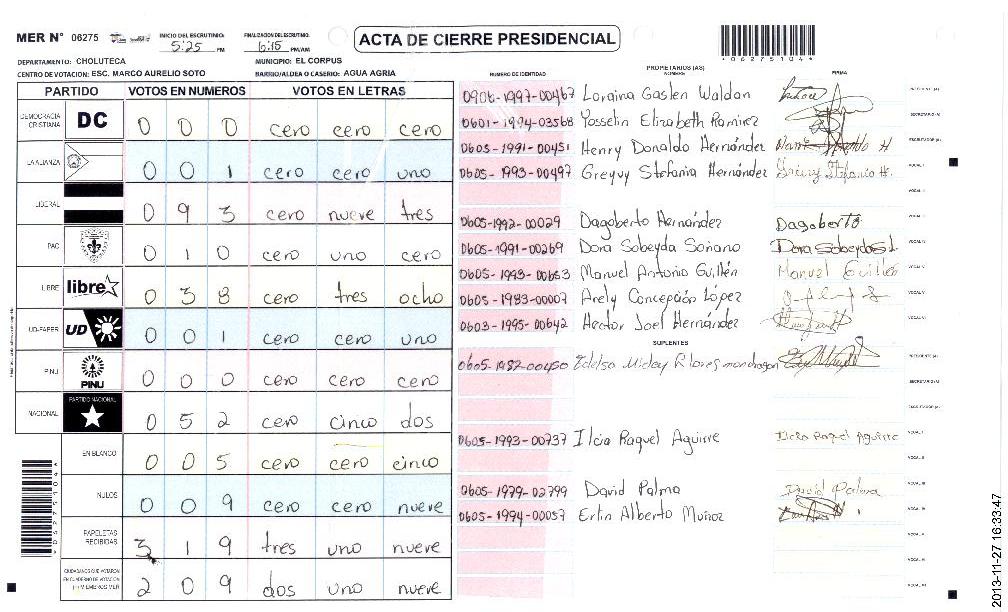 MER N° 06275 INICIO DEL ESCRUTINIO: 5:25 PM FINALIZACION DEL ESCRUTINIO: 6:15 PM/AM
ACTA DE CIERRE PRESIDENCIAL
*06275104*
DEPARTAMENTO: CHOLUTECA MUNICIPIO: EL CORPUS
CENTRO DE VOTACION: ESC. MARCO AURELIO SOTO BARRIO/ALDEA O CASERIO: AGUA AGRIA
PARTIDO VOTOS EN NUMEROS VOTOS EN LETRAS
DEMOCRACIA CRISTIANA DC 0 0 0 cero cero cero
LA ALIANZA 0 0 1 cero cero uno
LIBERAL 0 9 3 cero nueve tres
PAC 0 1 0 cero uno cero
LIBRE libre 0 3 8 cero tres ocho
UD-FAPER UD 0 0 1 cero cero uno
PINU PINU 0 0 0 cero cero cero
NACIONAL PARTIDO NACIONAL 0 5 2 cero cinco dos
EN BLANCO 0 0 5 cero cero cinco
NULOS 0 0 9 cero cero nueve
PAPELETAS RECIBIDAS 3 1 9 tres uno nueve
CIUDADANOS QUE VOTARON EN CUADERNO DE VOTACION (+) MIEMBROS MER 2 0 9 dos uno nueve
*06275104*
PROPIETARIOS (AS)
NUMERO DE IDENTIDAD NOMBRE FIRMA
0906-1997-00467 Loraina Gaslen Waldan PRESIDENTE (A)
0601-1994-03568 Yosselin Elizabeth Ramirez SECRETARIO (A)
0605-1991-00451 Henry Donaldo Hernández ESCRUTADOR (A)
0605-1993-00497 Greyvy Stefania Hernández VOCAL I
VOCAL II
0605-1992-00029 Dagoberto Hernández Dagoberto VOCAL III
0605-1991-00269 Dora Sobeyda Soriano VOCAL IV
0605-1993-00653 Manuel Antonio Guillén Manuel Guillen VOCAL V
0605-1983-00007 Arely Concepción López
0603-1995-00642 Hector Joel Hernández
SUPLENTES
0605-1982-00450 PRESIDENTE (A)
SECRETARIO (A)
ESCRUTADOR (A)
0605-1993-00737 Ilcia Raquel Aguirre Ilcia Raquel Aguirre VOCAL I
VOCAL II
0605-1979-02799 David Palma David Palma VOCAL III
0605-1994-00057 Erlin Alberto Muñoz VOCAL IV
2013-11-27 16:33:47